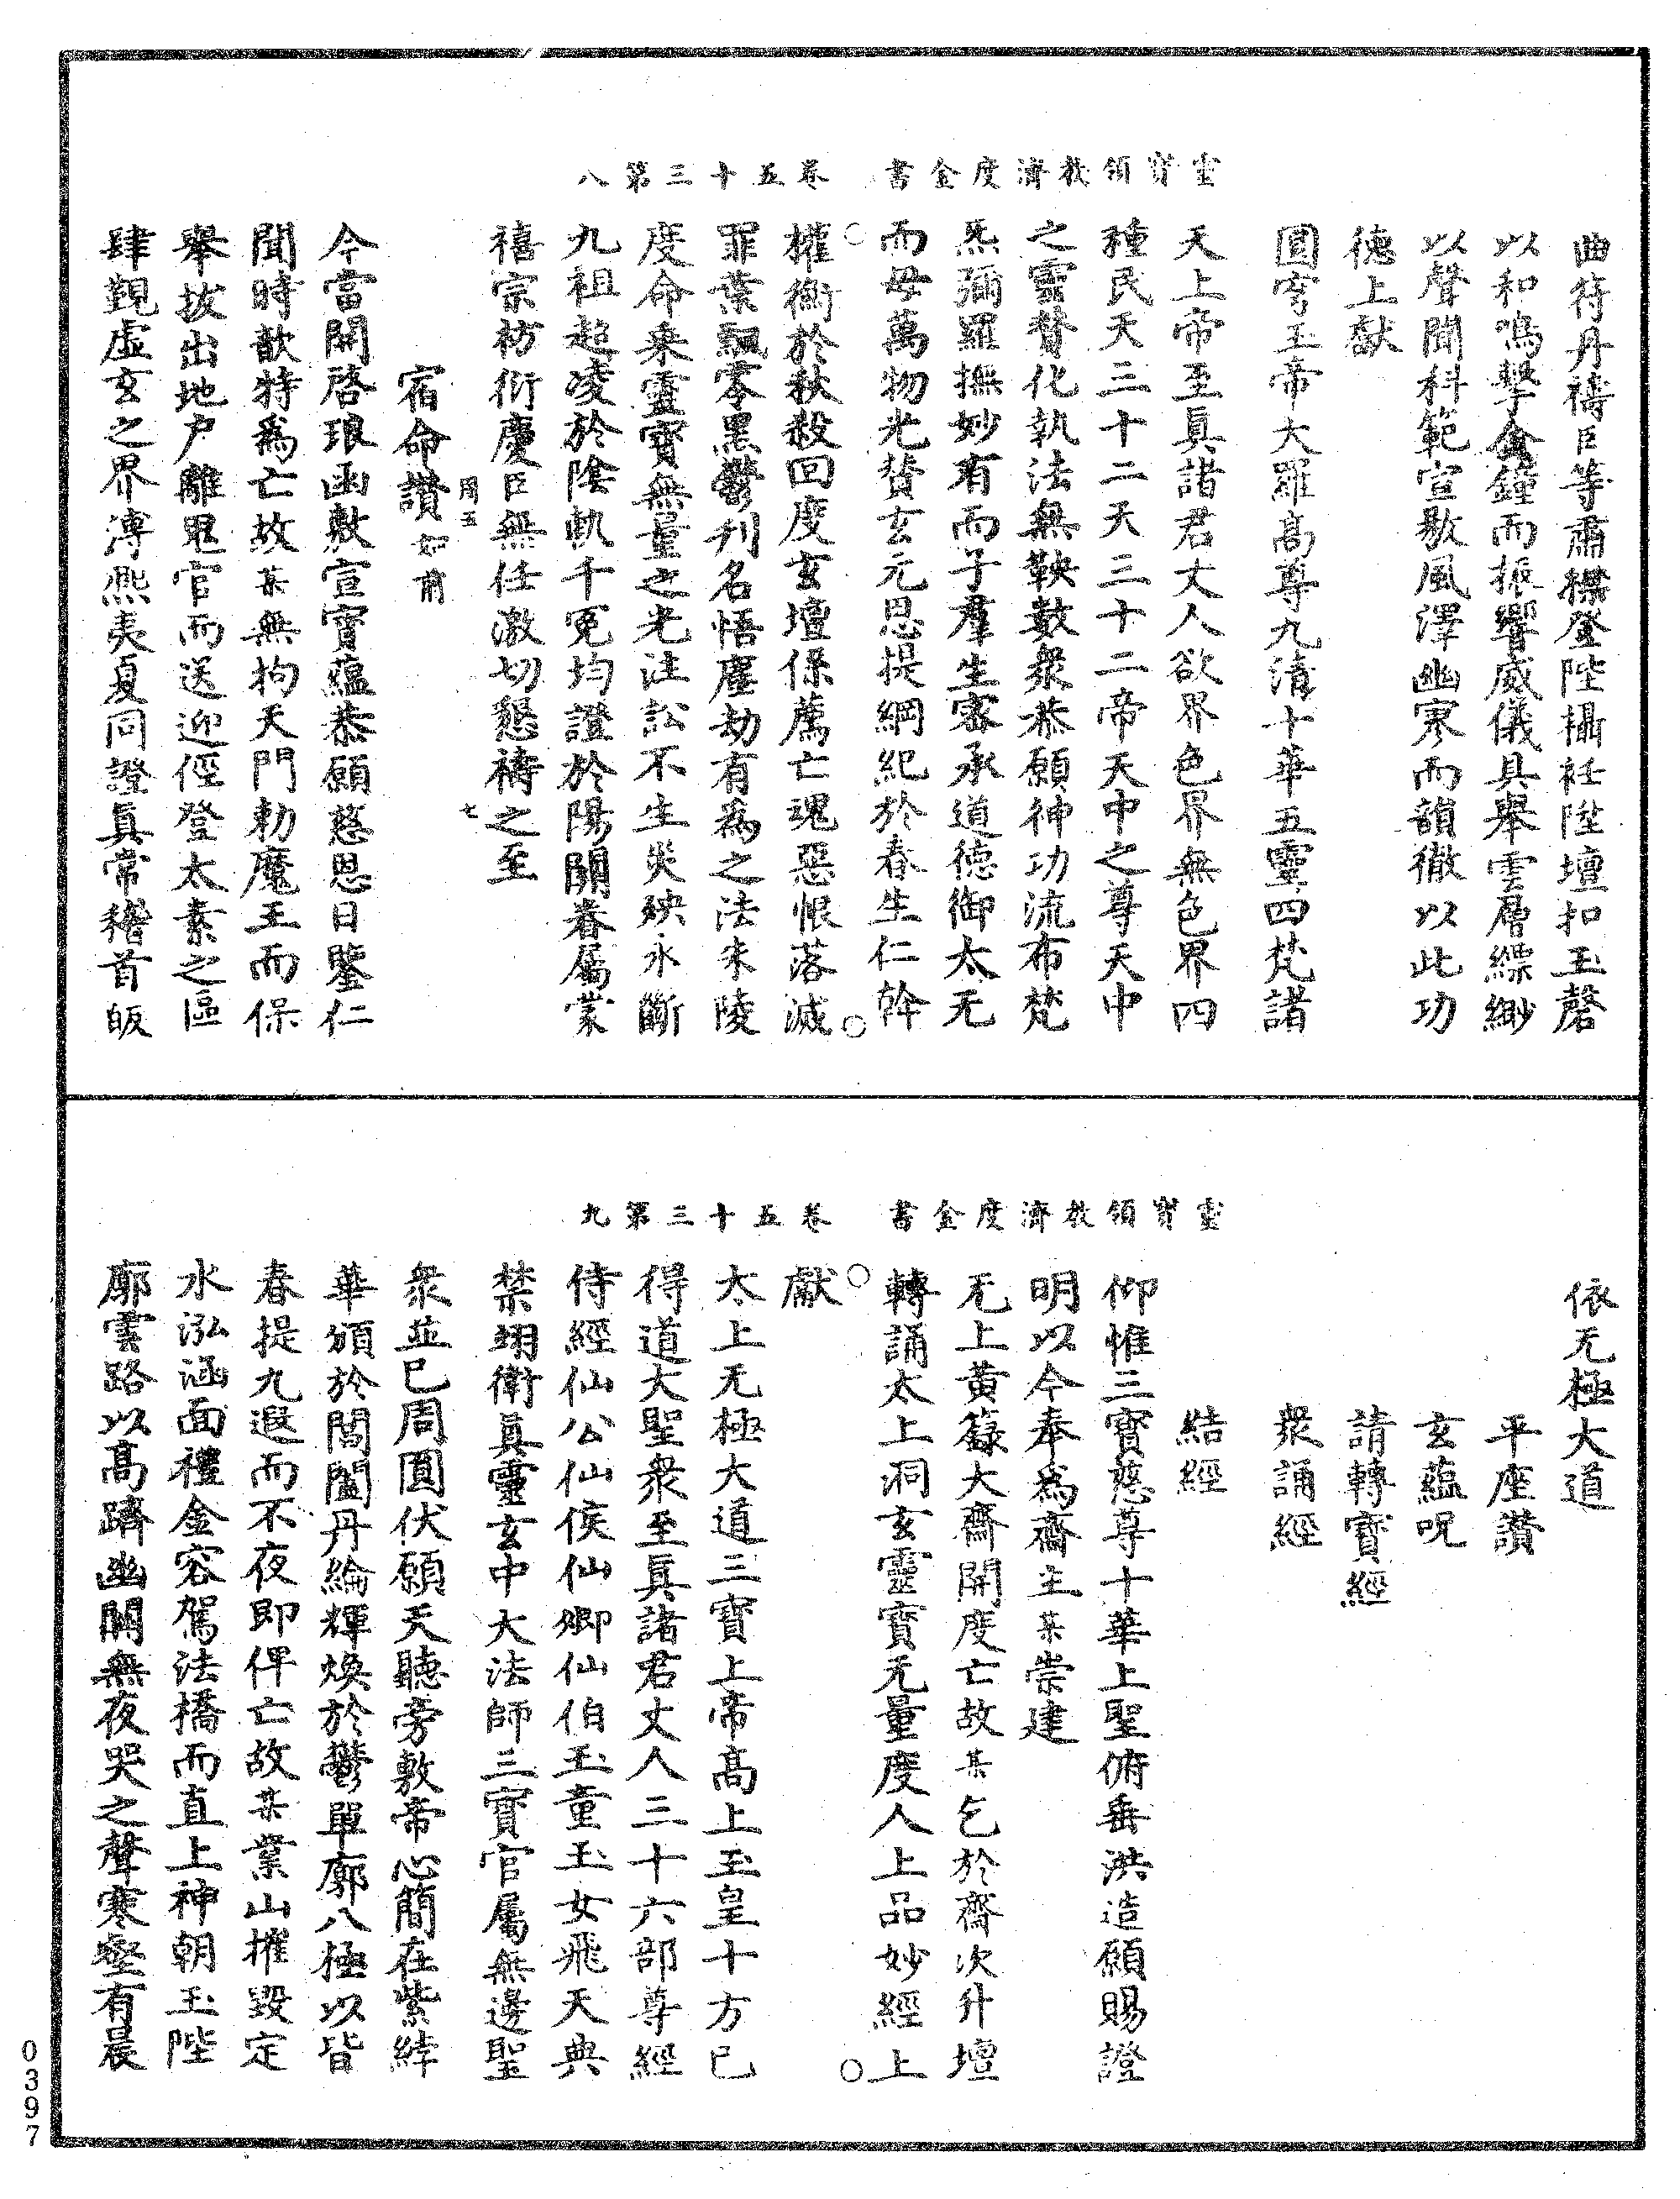 靈寶領教濟度金書　卷五十三第八
曲符丹禱臣等肅襟登陛攝衽陞壇扣玉磬
以和鳴擊金鐘而振響威儀具舉雲層縹緲
以聲聞科範宣敭風澤幽寥而韻徹以此功
德上獻
圓穹玉帝大羅高尊九清十華五靈四梵諸
天上帝至眞諸君丈人欲界色界無色界四
種民天三十二天三十二帝天中之尊天中
之靈贊化執法無鞅數衆恭願神功流布梵
炁彌羅撫妙有而子羣生密承道德御太无
而母萬物光賛玄元思提綱紀於春生仁幹
權衡於秋殺回度玄壇保薦亡魂惡恨落滅
罪葉飄零黑鬱刋名悟塵劫有為之法朱陵
度命乗靈寶無量之光注訟不生災殃永斷
九祖超凌於陰軌千冤均證於陽關眷屬蒙
禧宗枋衍慶臣無任激切懇禱之至
周五　七
宿命讚如前
今當開啓琅函敷宣寶蘊恭願慈恩日鑒仁
聞時歆特為亡故某無拘天門勅魔王而保
舉拔出地户離鬼官而送迎徑登太素之區
肆觀虛玄之界溥熈夷夏同證眞常稽首皈
靈寶領教濟度金書　卷五十三第九
依无極大道
平座讚
玄蘊呪
請轉寶經
衆誦經
結經
仰惟三寶慈尊十華上聖俯垂洪造願賜證
明以今奉為齋主某崇建
无上黃籙大齋開度亡故某乞於齋次升壇
轉誦太上洞玄靈寶无量度人上品妙經上
獻
太上无極大道三寶上帝高上玉皇十方已
得道大聖衆至眞諸君丈人三十六部尊經
侍經仙公仙侯仙卿仙伯玉童玉女飛天典
禁翊衛眞靈玄中大法師三寶官屬無邊聖
衆並已周圓伏願天聽旁敷帝心簡在紫緯
華頒於閶闔丹綸輝煥於鬱單廓八極以皆
春提九遐而不夜即俾亡故某業山摧毀定
水泓涵面禮金容駕法橋而直上神朝玉陛
廓雲路以高躋幽關無夜哭之聲寒壑有晨
0397